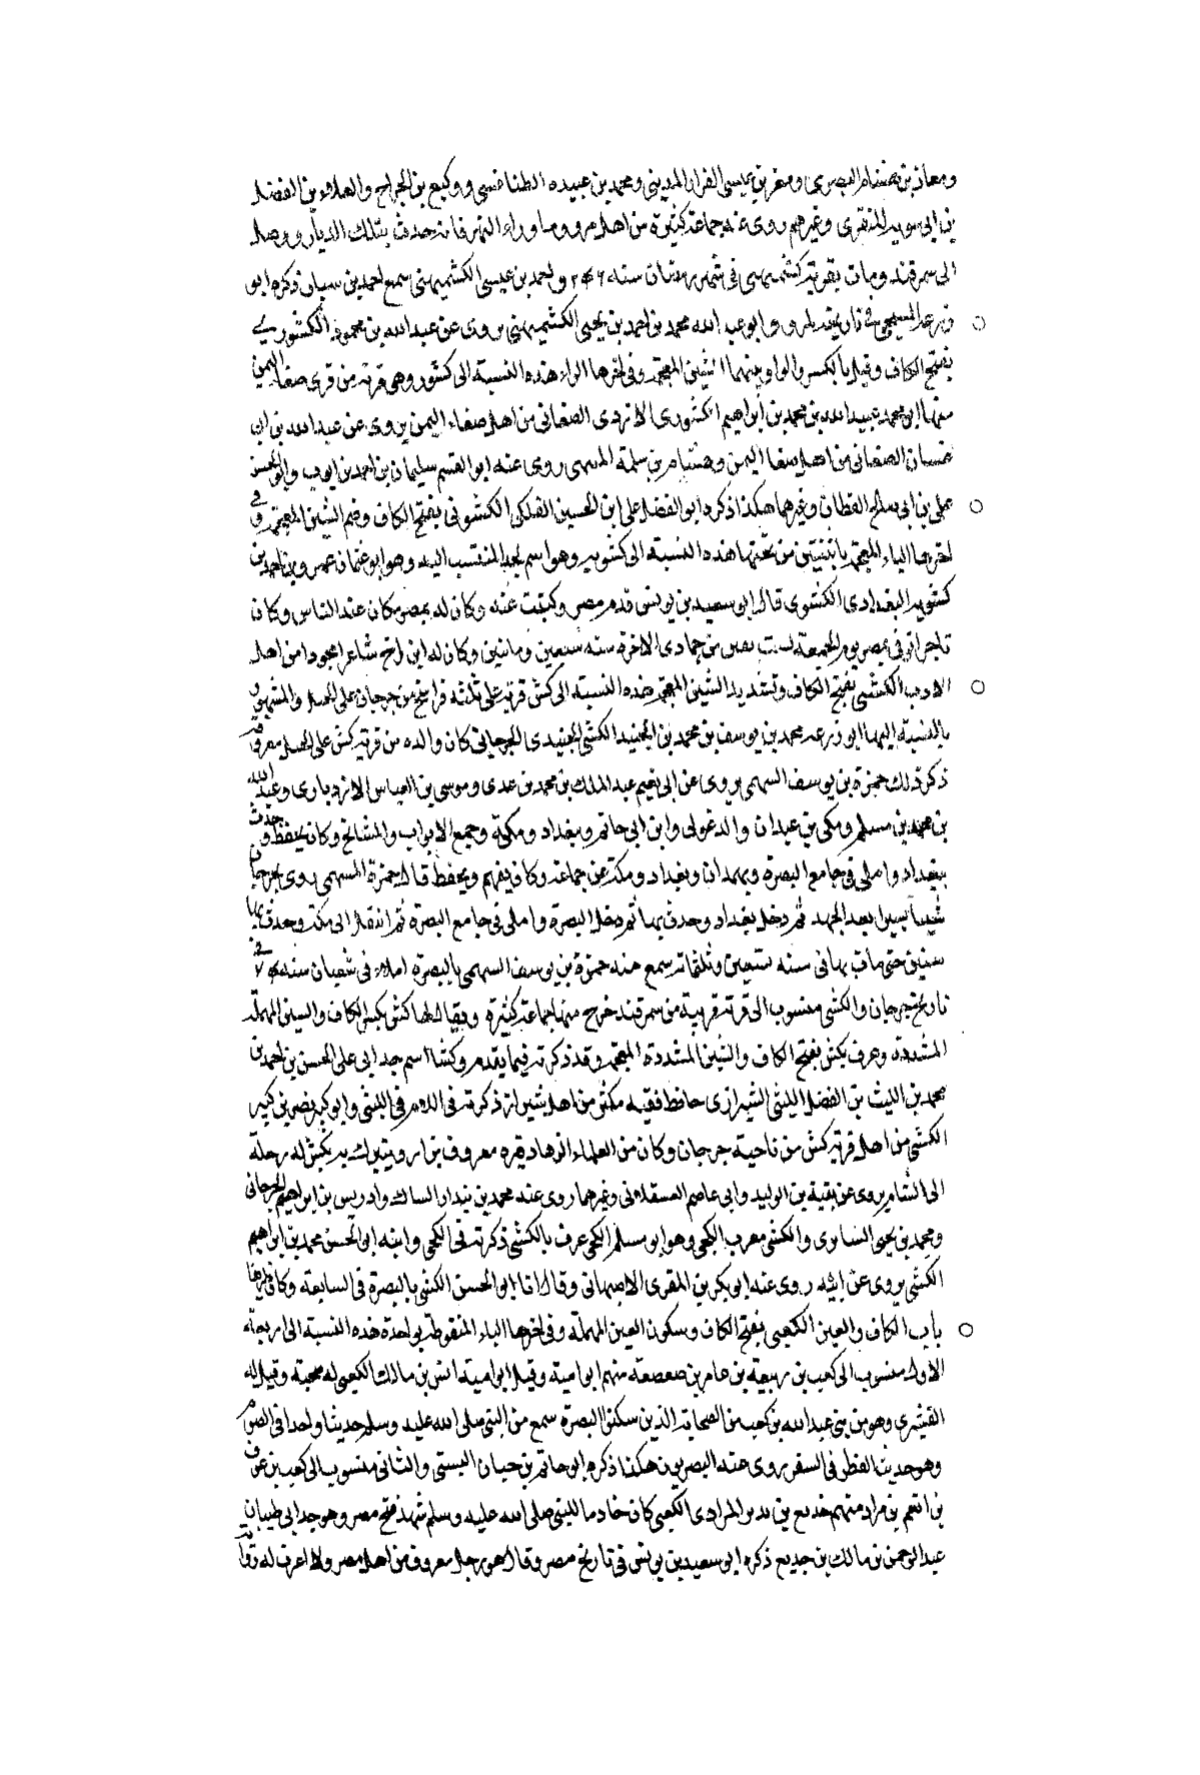 ومعاذ بن هشام البصرى ومعن بن عيسى القزاز المدينى ومحمد بن عبيده الطنافسى ووكيع بن الجراح والعلاء بن الفضل
بن ابى سويد المنقرى وغيرهم روى عنه جماعة كثيرة من اهل مرو وما وراء النهر فانه حدث بتلك الديار ووصل
الى سمرقند ومات بقرية كشميهن فى شهر رمضان سنه ولحمد بن عيسى الكشميهنى سمع احمد بن سيار ذكره ابو
زرعه السبحى فى تاريخه لمرو وابو عبد الله محمد بن احمد بن يحيى الكشميهنى يروى عن عبد الله بن محمود الكشورى
بفتح الكاف وقيل بالكسر والواو بينهما الشين المعجمه وفى اخرها الراء هذه النسبة الى كشور وهى قرية من قرى صنعا اليمن
منها ابو محمد عبيد الله بن محمد بن ابراهيم الكشورى الازدى الصغانى من اهل صنعاء اليمن يروى عن عبد الله بن ابى
غسان الصغانى من اهل صنعا اليمن وهشام بن سلمة روى عنه ابو القسم سليمان بن احمد بن ايوب وابو الحسن
على بن ابى صالح القطان وغيرهما هكذا ذكره ابو الفضل على ابن الحسين الفلكى الكشوى بفتح الكاف وضم الشين المعجمه وفى
اخرها الياء المعجمه باثنتين من تحتها هذه النسبة الى كشويه وهو اسم لجد المنتسب اليه وهو ابو عثمان عمرو بن احمد بن
كشويه البغدادى الكشوى قال ابو سعيد بن يونس قدم مصر وكتبت عنه وكان له بمصر مكان عند الناس وكان
تاجرا توفى بمصر يوم الجمعة لست بقين من جمادى الاخرة سنه تسعين ومائتين وكان له ابن اخ شاعرا مجودا من اهل
الادب الكشى بفتح الكاف وتشديد الشين المعجمه هذه النسبة الى كش قرية على ثلثه فراسخ من جرجان على الجبل والمشهور
بالنسبة اليها ابو زرعه محمد بن يوسف بن محمد بن الجنيد الكشى الجنيدى الجرجانى كان والده من قرية كش على الجبل معروفه
ذكر ذلك حمزة بن يوسف السهمى يروى عن ابى نعيم عبد الملك بن محمد بن عدى وموسى بن العباس الازدبارى وعبد الله
بن محمد بن مسلم ومكى بن عبدان والدغولى وابن ابى حاتم وبغداد ومكة وجمع الابواب والمشائخ وكان يحفظ وحدث
ببغداد واملى فى جامع البصرة وبهمدان وبغداد ومكة عن جماعة وكان يفهم ويحفظ قال حمزة السهمى روى بجرجان
شيئا يسيرا بعد الجهد ثم دخل بغداد وحدث بها ثم دخل البصرة واملى فى جامع البصرة ثم انتقل الى مكة وحدث بها
سنين حتى مات بها فى سنه تسعين وثلثمائه سمع منه حمزة بن يوسف السهمى بالبصرة املاء فى شعبان سنه فى
تاريخ جرجان والكشى منسوب الى قرية قريبة من سمرقند خرج منها جماعة كثيرة ويقال لها كش بكسر الكاف والسين المهملة
المشددة وعرف بكش بفتح الكاف والشين المشددة المعجمه وقد ذكرته فيما يقدم وكشا اسم جد ابى على الحسن بن احمد بن
محمد بن الليث بن الفضل الليثى الشيرازى حافظ فقيه مكثر من اهل شيراز ذكرته فى اللام فى الليثى وابو كبر نصر بن كبير
الكشى من اهل قرية كش من ناحية جرجان وكان من العلماء الزهاد قبره معروف يزار ويتبرك به بكش له رحلة
الى الشام يروى عن بقية بن الوليد وابى عاصم العسقلانى وغيرهما روى عنه محمد بن بندار السباك وادريس بن ابراهيم الجرجانى
ومحمد بن يحيى والكشى معرب الكجى وهو ابو مسلم الكجى عرف بالكشى ذكرته فى الكجى وابنه ابو الحسن محمد بن ابراهيم
الكشى يروى عن ابيه روى عنه ابو بكر بن المقرى الاصبهانى وقال انا ابو الحسن الكشى بالبصرة فى السابعة وكان
باب الكاف والعين الكعبى بفتح الكاف وسكون العين المهملة وفى اخرها الباء المنقوطة بواحدة هذه النسبة الى اربعة
الاول منسوب الى كعب بن ربيعة بن عامر بن صعصعة منهم ابو امية وقيل ابو امية انس بن مالك الكعبى له صحبة وقيل له
القشيرى وهو من بنى عبد الله بن كعب من الصحابة الذين سكنوا البصرة سمع من النبى صلى الله عليه وسلم حديثا واحدا فى الصوم
وهو حديث الفطر فى السفر روى عنه البصريون هكذا ذكره ابو حاتم بن حيان البستى والثانى منسوب الى كعب بن عوف
بن انعم بن مراد منهم خديع بن المرادى الكعبى كان خادما للنبى صلى الله عليه وسلم شهد فتح مصر وهو جد ابى ظبيان
عبد الرحمن بن مالك بن جديع ذكره ابو سعيد بن يونس فى تاريخ مصر وقال هو رجل معروف من اهل مصر ولا اعرف له رواية